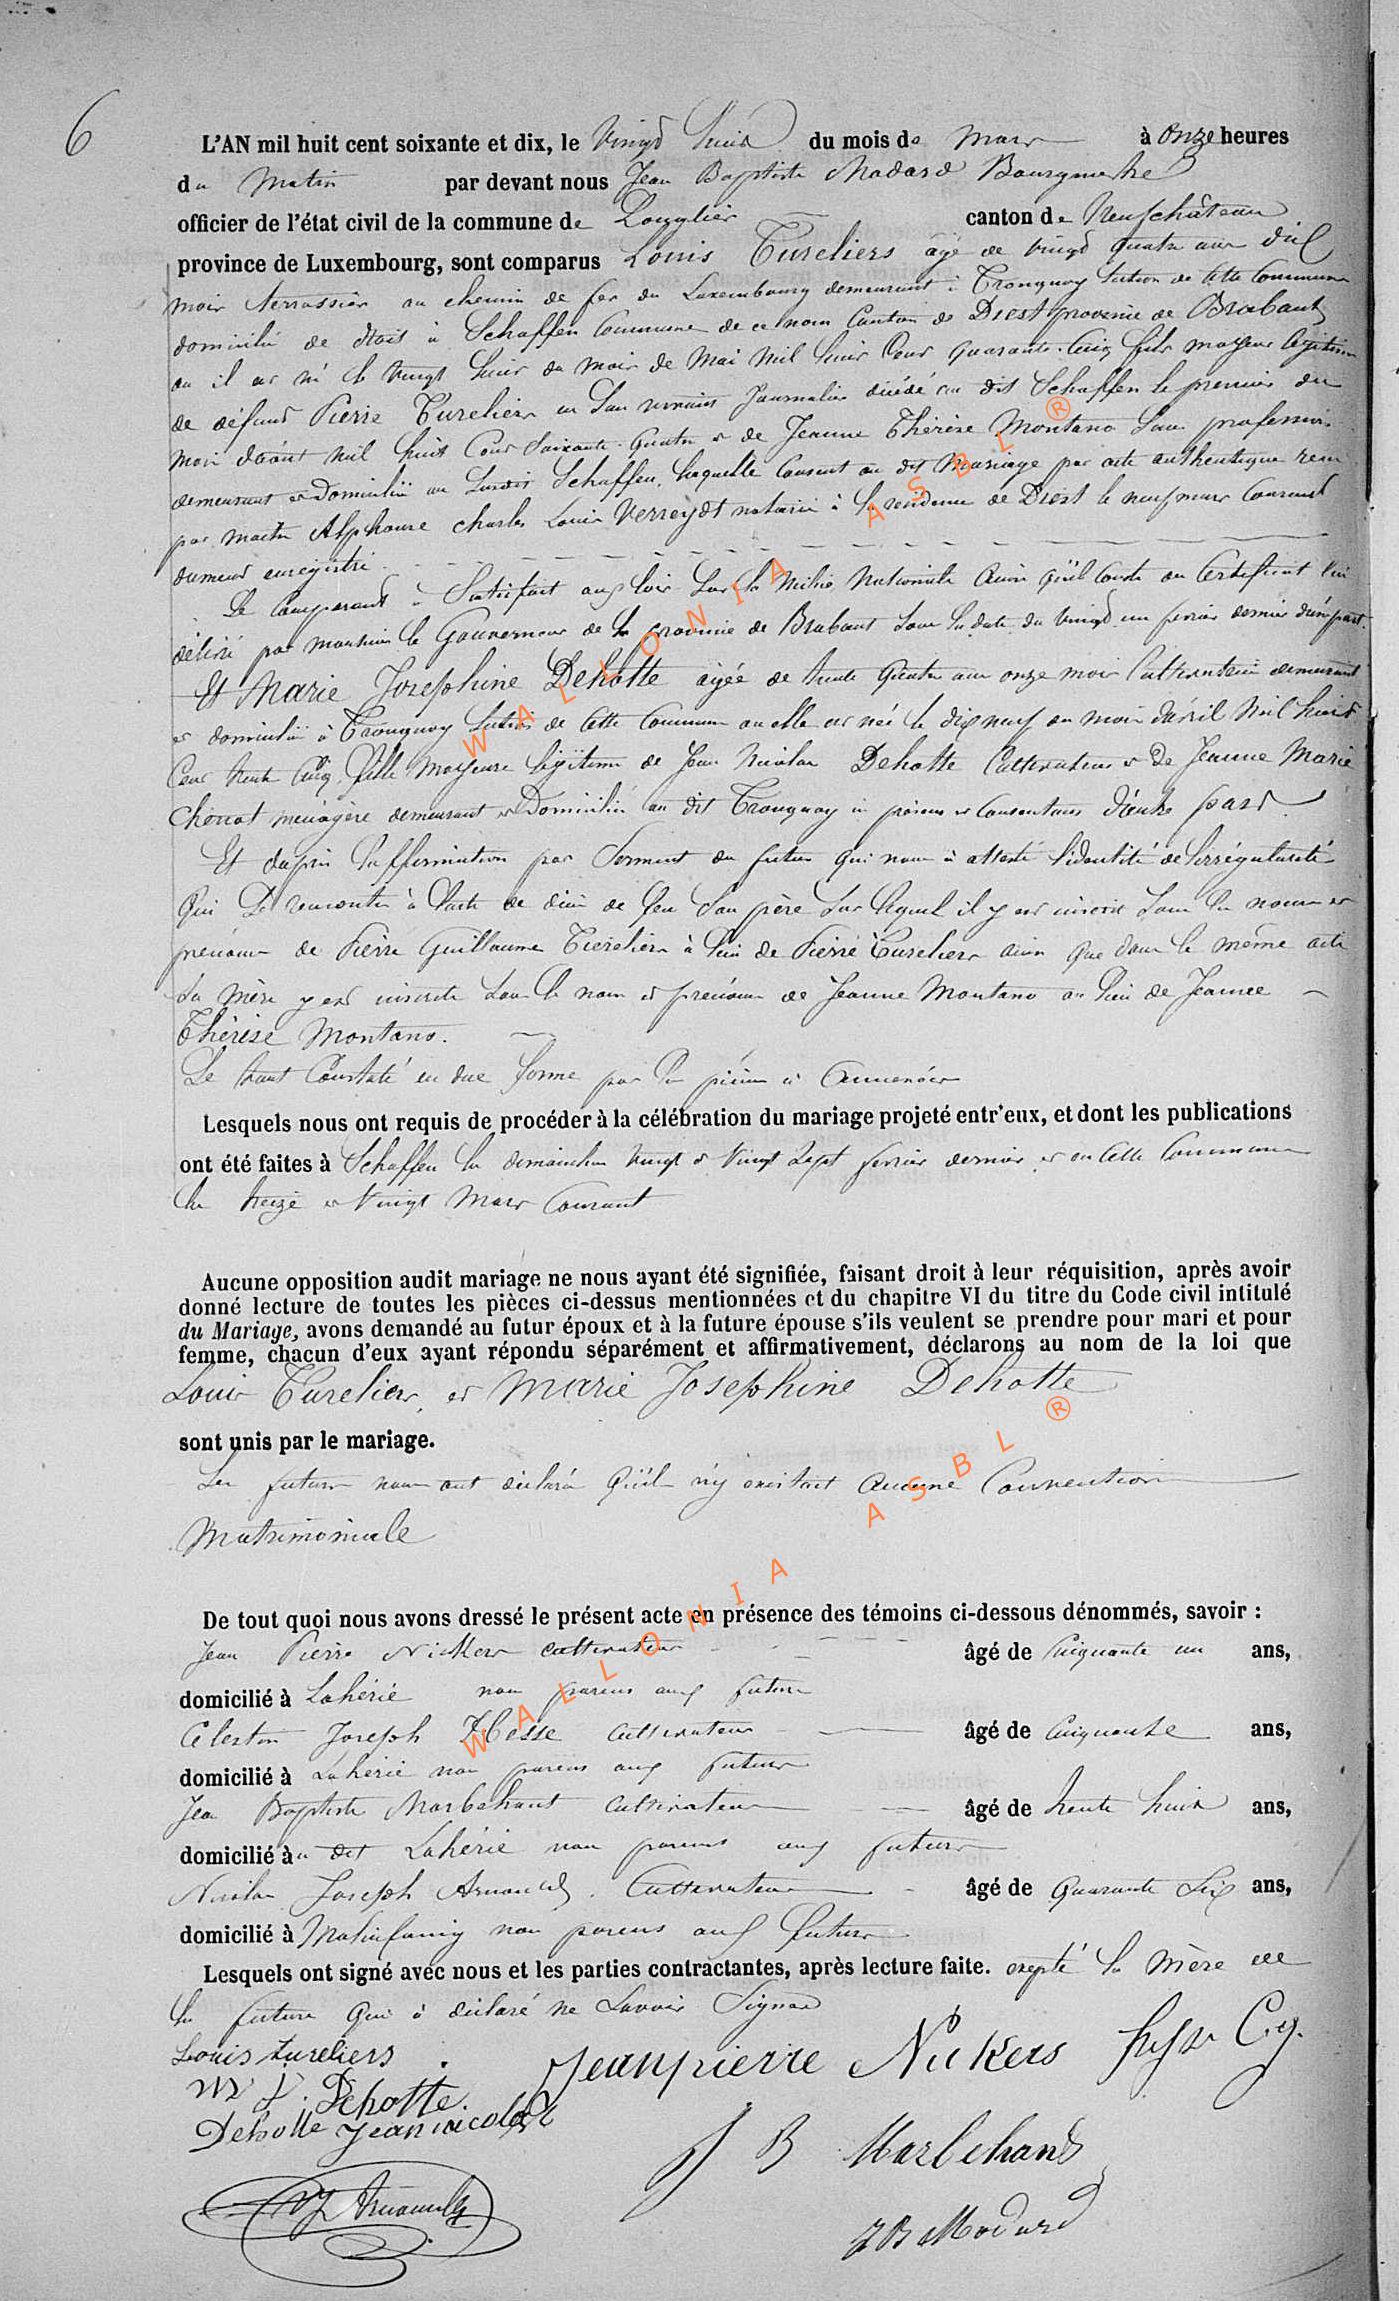 6
L'AN mil huit cent soixante et dix, le Vingt huit du mois de Mars à Onze heures
du Matin par devant nous Jean Baptiste Modard Bourgmestre
officier de l'état civil de la commune de Longlier canton de Neufchâteau
province de Luxembourg, sont comparus Louis Tureliers âgé de vingt quatre ans dix
mois terrassier au chemin de fer du Luxembourg demeurant à Tronquoy Section de cette Commune
domicilié de droit à Schaffen Commune de ce nom Canton de Diest province de Brabant
ou il est né le vingt huit du mois de Mai Mil huit Cent quarante-Cinq fils majeur légitime
de défunt Pierre Tureliers en son vivant Journalier décédé au dit Schaffen le premier du
mois d'août mil huit Cent Soixante-quatre et de Jeanne Thérèse Montano Sans profession
demeurant et Domiciliée au susdit Schaffen, laquelle Consent au dit Mariage par acte authentique reçu
par maître Alphonse Charles Louis Verreydt notaire à la résidence de Diest le neuf mars Courant
dument enregistré.
Le Comparant à Satisfait aux lois Sur la Milice Nationale Ainsi qu'il Conste au Certificat lui
délivré par monsieur le Gouverneur de la province de Brabant sous la date du vingt un fevrier dernier d'une part.
Et Marie Josephine Dehotte agée de trente quatre ans onze mois Cultivatrice demeurant
et domiciliée à Tronquoy Section de cette Commune ou elle est née le dix neuf du mois d'avril Mil huit
Cent trente Cinq fille Majeure légitime de Jean Nicolas Dehotte Cultivateur et de Jeanne Marie
Chenot ménagère demeurant et Domiciliés au dit Tronquoy ici présens et Consentans D'autre part
Et d'après l'affirmation par Serment du futur qui nous à attesté l'identité et l'irrégularité
Qui se rencontre à l'acte de décès de feu Son père Sur lequel il y est inscrit Sous les noms et
prénoms de Pierre Guillaume Tureliers à lieu de Pierre Tureliers ainsi que dans le même acte
Sa Mère y est inscrite Sous le nom et prénoms de Jeanne Montano au lieu de Jeanne
Thérèse Montano.
Le tout Constaté en due forme par les pièces ci Annexées
Lesquels nous ont requis de procéder à la célébration du mariage projeté entr'eux, et dont les publications
ont été faites à Schaffen les dimanches vingt et Vingt Sept fevrier dernier et en Cette Commune
les treize et Vingt Mars Courant
Aucune opposition audit mariage ne nous ayant été signifiée, faisant droit à leur réquisition, après avoir
donné lecture de toutes les pièces ci-dessus mentionnées et du chapitre VI du titre du Code civil intitulé
du Mariage, avons demandé au futur époux et à la future épouse s'ils veulent se prendre pour mari et pour
femme, chacun d'eux ayant répondu séparément et affirmativement, déclarons au nom de la loi que
Louis Tureliers, et Marie Josephine Dehotte
sont unis par le mariage.
Les futurs nous ont déclaré Qu'il n'y existait Aucune Convention
Matrimoniale
De tout quoi nous avons dressé le présent acte en présence des témoins ci-dessous dénommés, savoir :
Jean Pierre Nickers cultivateur âgé de Cinquante un ans,
domicilié à Lahérie non parens aux futurs
Celestin Joseph Hesse Cultivateur âgé de Cinquante ans,
domicilié à Lahérie non parens aux futurs
Jean Baptiste Marbehant Cultivateur âgé de trente huit ans,
domicilié à u dit Lahérie non parens aux futurs
Nicolas Joseph Arnould, Cultivateur âgé de Quarante Six ans,
domicilié à Molinfaing non parens aux futurs
Lesquels ont signé avec nous et les parties contractantes, après lecture faite. excepté la Mère de
la future Qui à déclaré ne Savoir Signer
Louis tureliers
Jeanpierre Nickers
M J. Dehotte.
Dehotte Jean nicolas
J B Marbehant
NJ Arnould
JB Modard
WALLONIA ASBL ®
WALLONIA ASBL ®